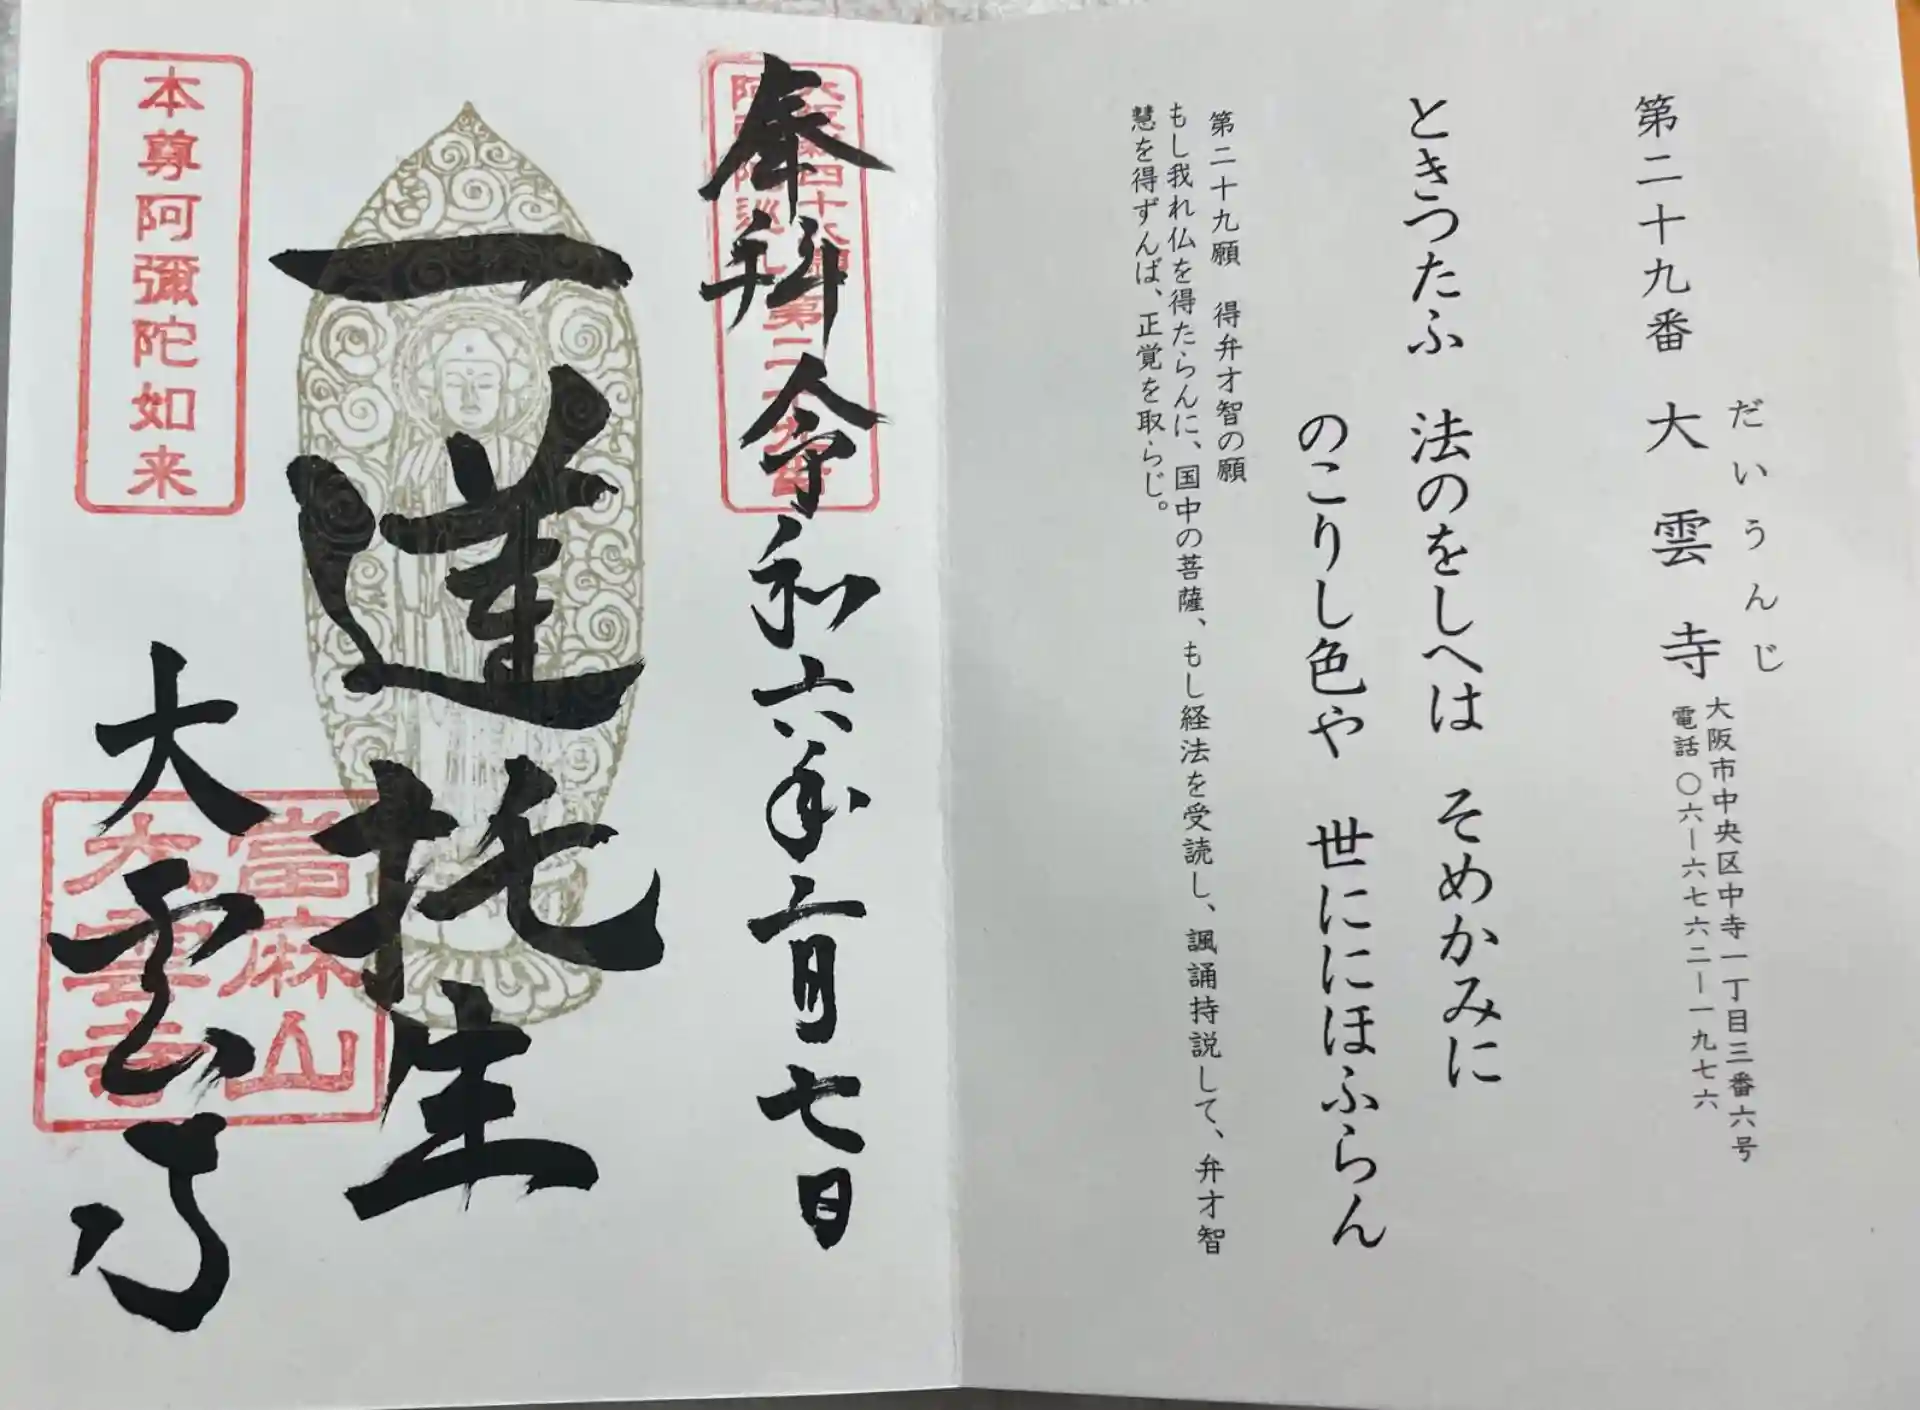 第二十九番 大雲寺
だいうんじ
大阪市中央区中寺一丁目三番六号
電話〇六ー六七六二ー一九七六
ときつたふ 法のをしへは そめかみに
のこりし色や 世ににほふらん
第二十九願 得弁才智の願
もし我れ仏を得たらんに、国中の菩薩、もし経法を受読し、諷誦持説して、弁才智
慧を得ずんば、正覚を取らじ。
奉拜 令和六年二月七日
一蓮托生
大雲寺
本尊阿彌陀如来
當麻山
大雲寺